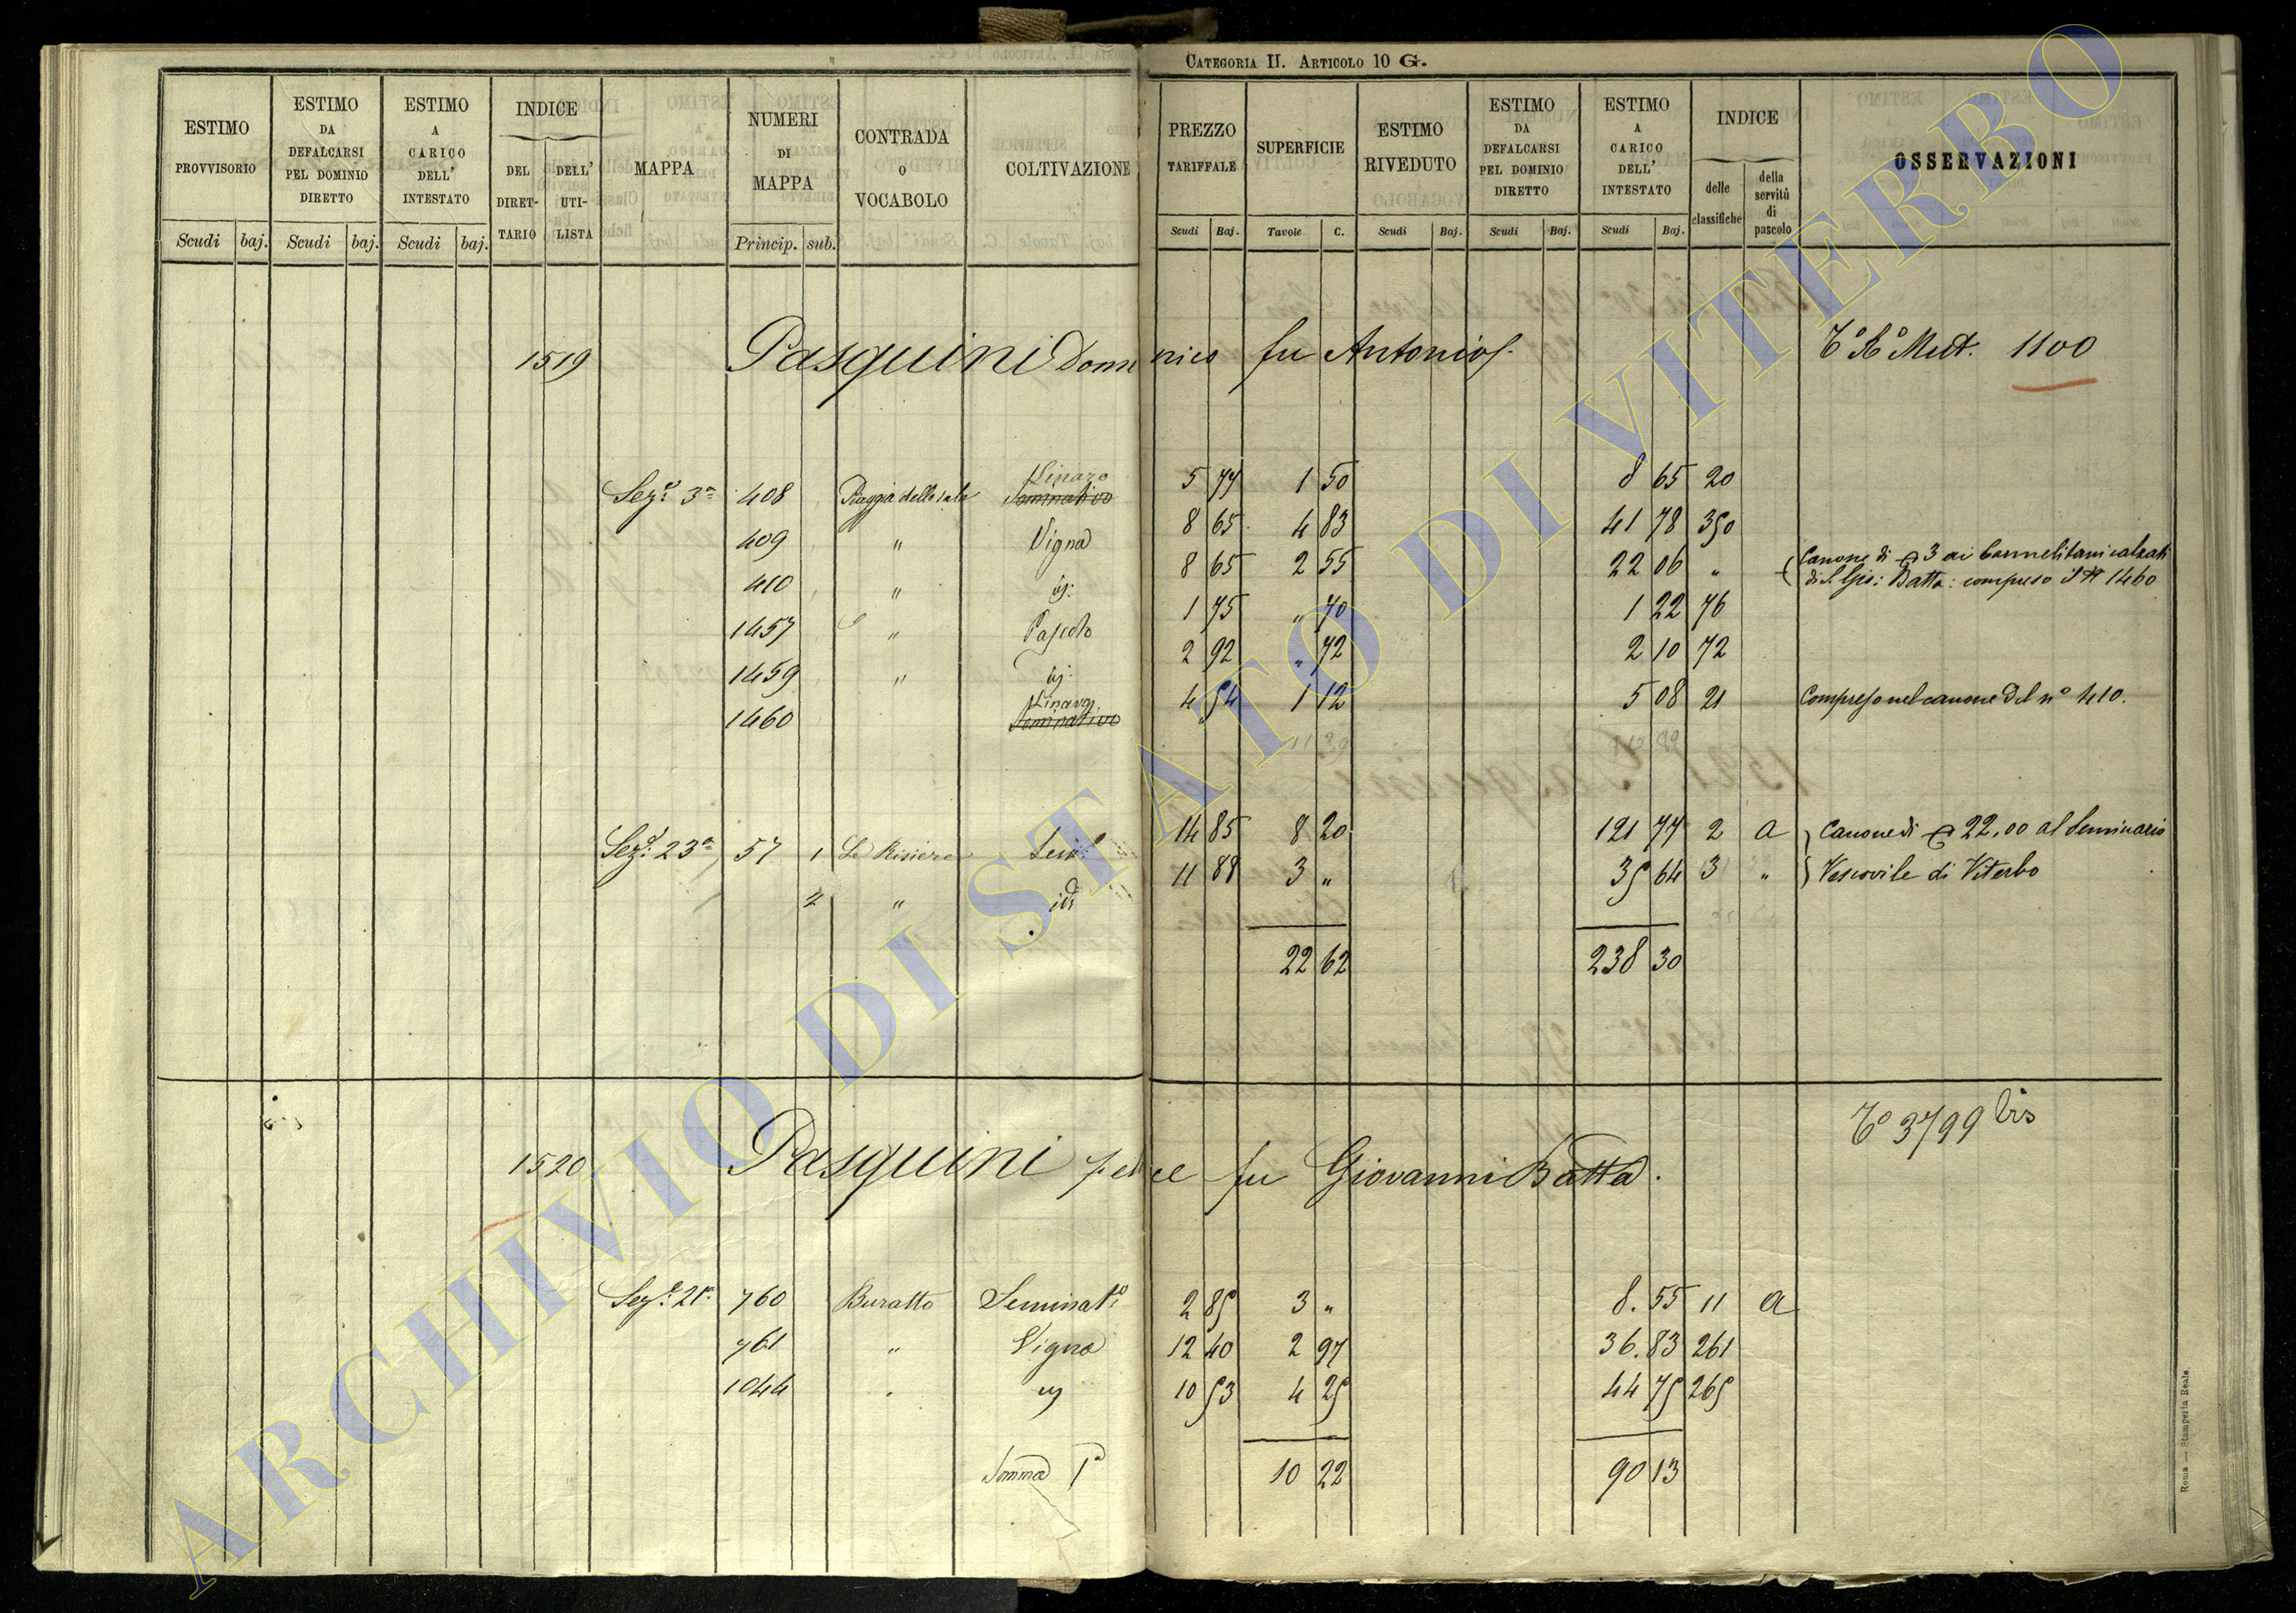 CATEGORIA II. ARTICOLO 10 G.
ESTIMO PROVVISORIO
Scudi baj.
ESTIMO DA DEFALCARSI PEL DOMINIO DIRETTO
Scudi baj.
ESTIMO A CARICO DELL' INTESTATO
Scudi baj.
INDICE
DEL DIRET-TARIO
DELL' UTI-LISTA
MAPPA
NUMERI DI MAPPA
Princip. sub.
CONTRADA o VOCABOLO
COLTIVAZIONE
PREZZO TARIFFALE
Scudi Baj.
SUPERFICIE
Tavole C.
ESTIMO RIVEDUTO
Scudi Baj.
ESTIMO DA DEFALCARSI PEL DOMINIO DIRETTO
Scudi Baj.
ESTIMO A CARICO DELL' INTESTATO
Scudi Baj.
INDICE
delle classifiche
della servitù di pascolo
OSSERVAZIONI
1519 Pasquini Domenico fu Antonio 1100
Sezе 3a 408 Piaggia della sala Seminativo 5 77 1 50 8 65 20
409 " Vigna 8 65 4 83 41 78 350
410 " 8 65 2 55 22 06 " Canone di 3 ai Carmelitani calzati
di S. Gio: Batta: compreso il N 1460
1457 " Pascolo 1 75 " 70 1 22 76
1459 " 2 92 " 72 2 10 72
1460 Seminativo 4 54 1 12 5 08 21 Compreso nel canone del n° 410.
Seze 23a 57 1 Le Risiere 14 85 8 20 121 77 2 a Canone di 22,00 al Seminario
2 " id 11 88 3 " 35 64 3 " Vescovile di Viterbo
22 62 238 30
3799 bis
1520 Pasquini Felice fu Giovanni Batta.
Seze 21a 760 Buratto Seminato 2 85 3 " 8.55 11 a
761 " Vigna 12 40 2 97 36.83 261
1044 " 10 53 4 25 44 75 265
Somma 10 22 90 13
Roma — Stamperia Reale.
ARCHIVIO DI STATO DI VITERBO